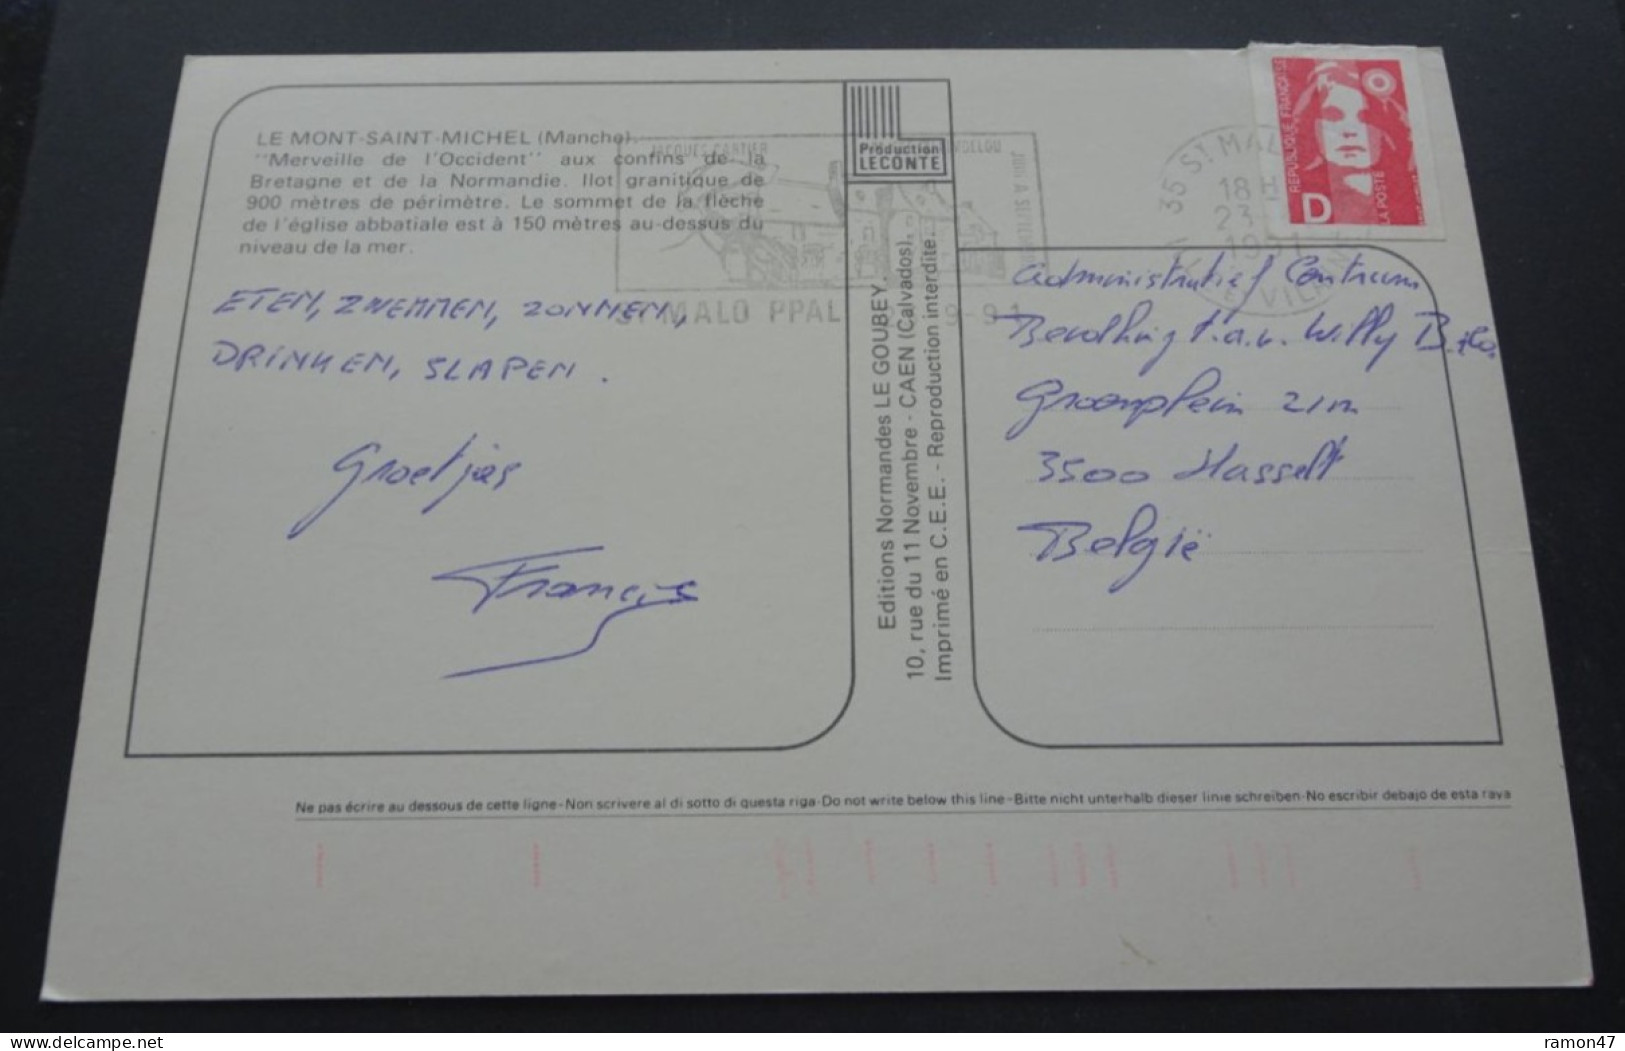 LE MONT-SAINT-MICHEL (Manche).
"Merveille de l'Occident" aux confins de la
Bretagne et de la Normandie. Ilot granitique de
900 mètres de périmètre. Le sommet de la flèche
de l'église abbatiale est à 150 mètres au-dessus du
niveau de la mer.
ETEN, ZWEMMEN, ZONNEN,
DRINKEN, SLAPEN.
Groetjes
Francis
Production
LECONTE
JACQUES CARTIER
ST MALO PPAL
9-91
Editions Normandes LE GOUBEY.
10, rue du 11 Novembre - CAEN (Calvados).
Imprimé en C.E.E. - Reproduction interdite.
35 ST MALO
18 H
23
1991
REPUBLIQUE FRANÇAISE
D
LA POSTE
Administratief Centrum
Bevolking t.a.v. Willy
Groenplein 21m
3500 Hasselt
België
Ne pas écrire au dessous de cette ligne-Non scrivere al di sotto di questa riga-Do not write below this line-Bitte nicht unterhalb dieser linie schreiben-No escribir debajo de esta rava
delcampe.net
ramon47